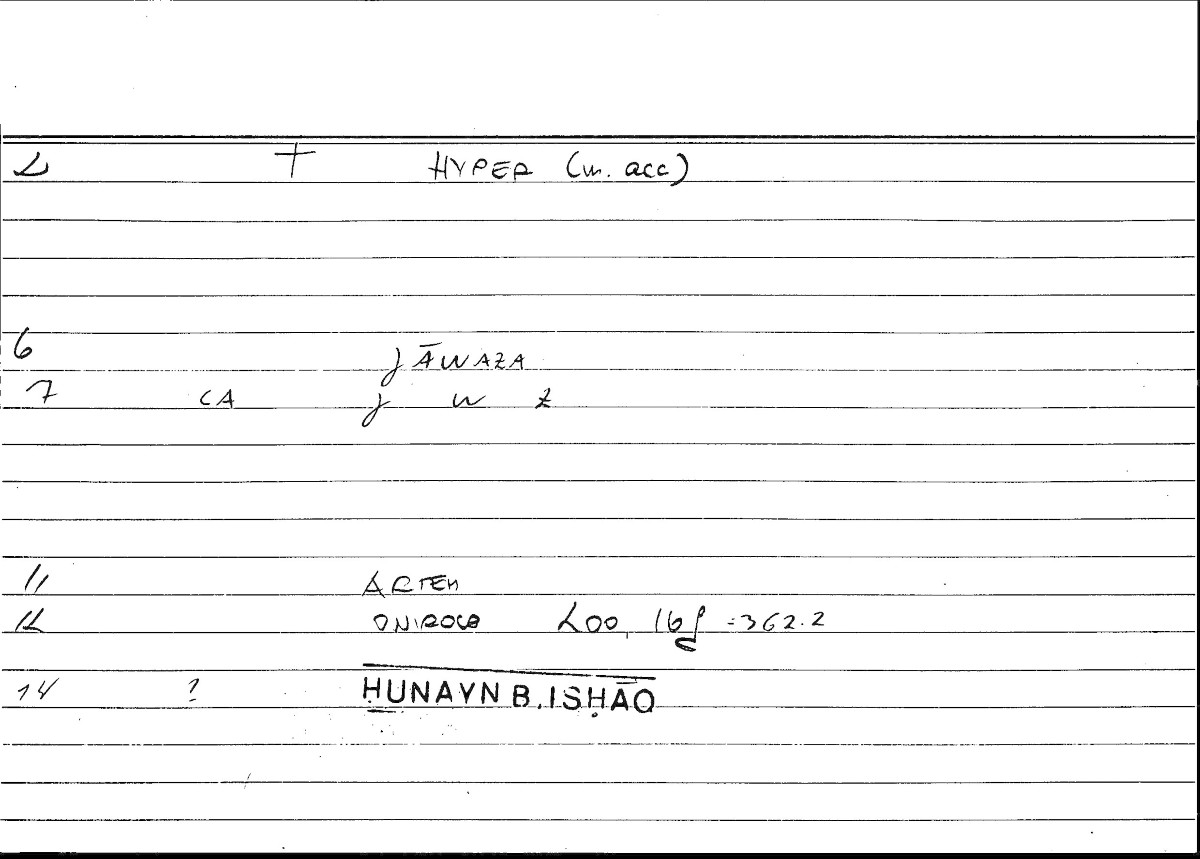 2 + HYPER (w. acc)
6 JĀWAZA
7 CA J W Z
11 ARTEM
12 ONIROCR 200, 16f =362.2
14 ? ḤUNAYN B. ISḤĀQ